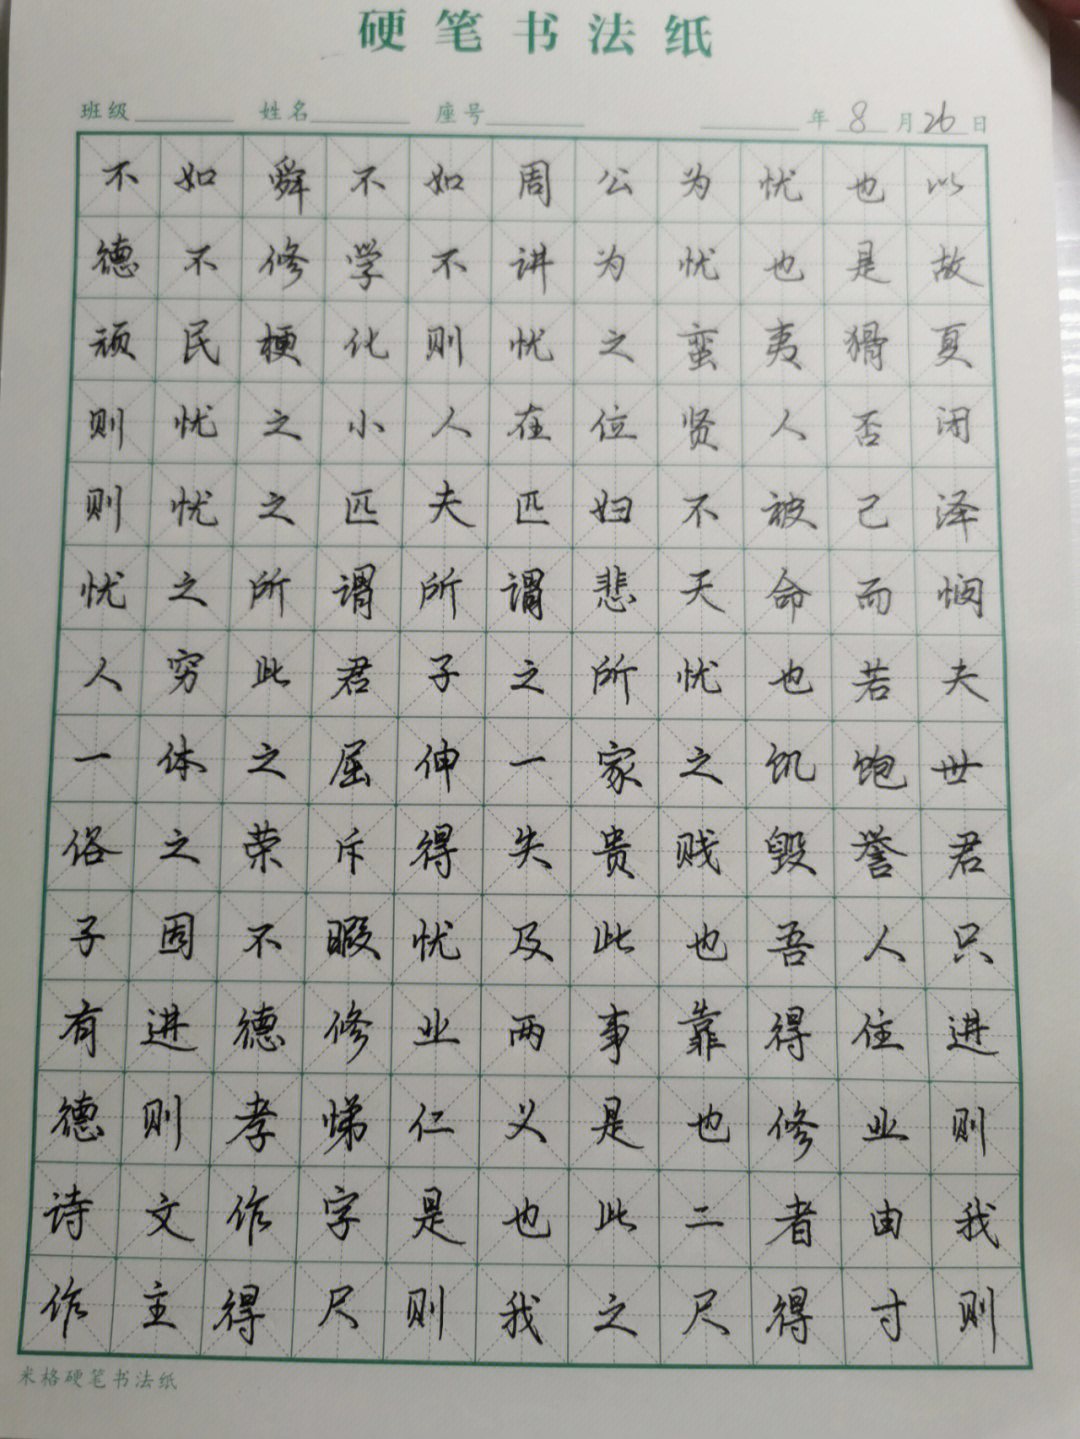 硬笔书法纸
班级 姓名 座号 年 8 月 26 日
不如舜不如周公为忧也以
德不修学不讲为忧也是故
顽民梗化则忧之蛮夷猾夏
则忧之小人在位贤人否闭
则忧之匹夫匹妇不被己泽
忧之所谓所谓悲天命而悯
人穷此君子之所忧也若夫
一体之屈伸一家之饥饱世
俗之荣斥得失贵贱毁誉君
子固不暇忧及此也吾人只
有进德修业两事靠得住进
德则孝悌仁义是也修业则
诗文作字是也此二者由我
作主得尺则我之尺得寸则
米格硬笔书法纸